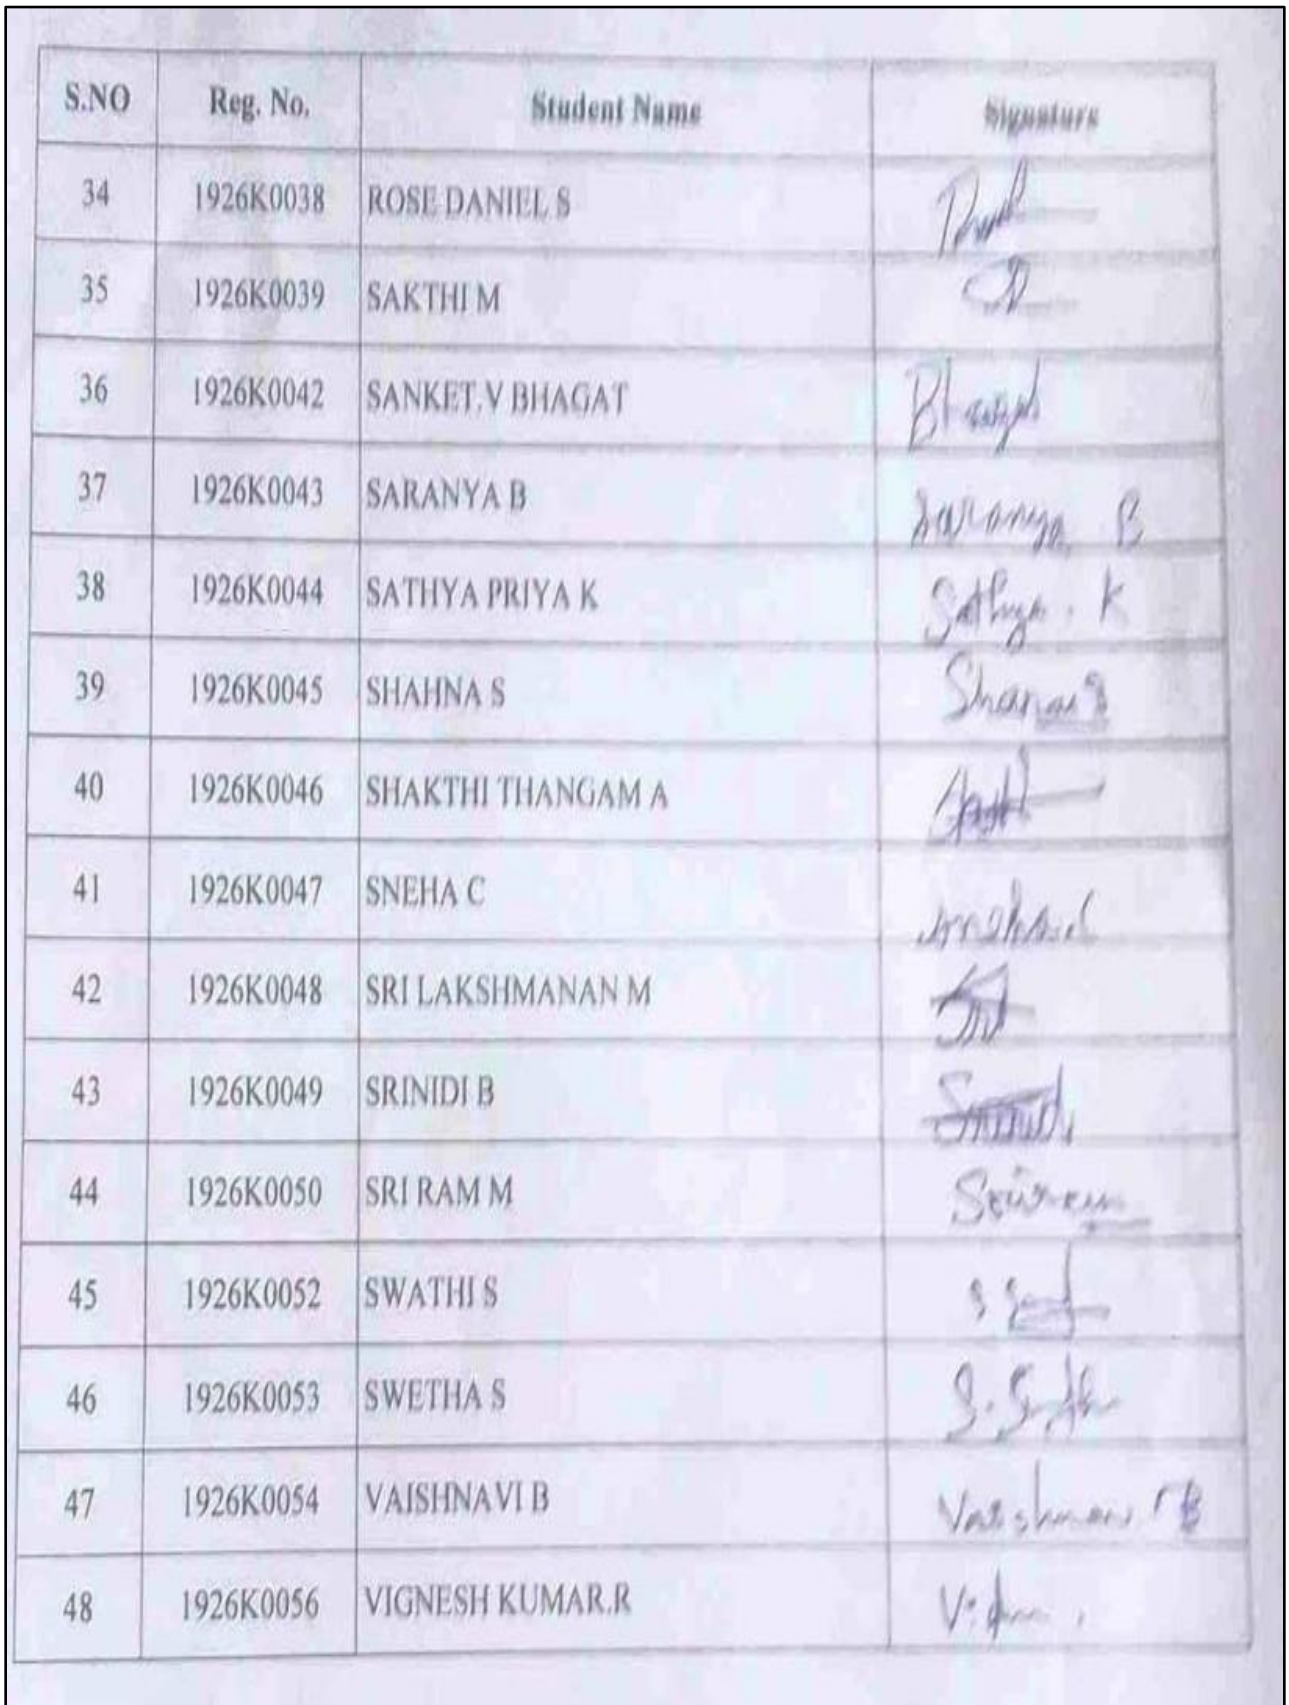 S.NO Reg. No. Student Name Signature
34 1926K0038 ROSE DANIEL S
35 1926K0039 SAKTHI M
36 1926K0042 SANKET.V BHAGAT
37 1926K0043 SARANYA B Saranya B
38 1926K0044 SATHYA PRIYA K Sathya . K
39 1926K0045 SHAHNA S
40 1926K0046 SHAKTHI THANGAM A
41 1926K0047 SNEHA C
42 1926K0048 SRI LAKSHMANAN M
43 1926K0049 SRINIDI B
44 1926K0050 SRI RAM M
45 1926K0052 SWATHI S
46 1926K0053 SWETHA S
47 1926K0054 VAISHNAVI B
48 1926K0056 VIGNESH KUMAR.R